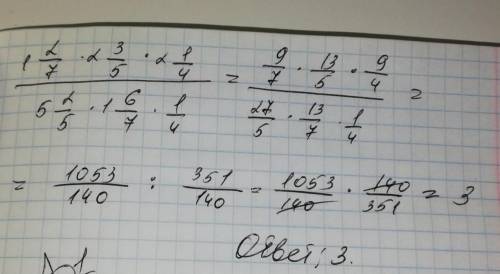 (1 2/7 · 2 3/5 · 2 1/4) / (5 2/5 · 1 6/7 · 1/4) = (9/7 · 13/5 · 9/4) / (27/5 · 13/7 · 1/4) =
= 1053/140 : 351/140 = 1053/140 · 140/351 = 3
Ответ: 3.